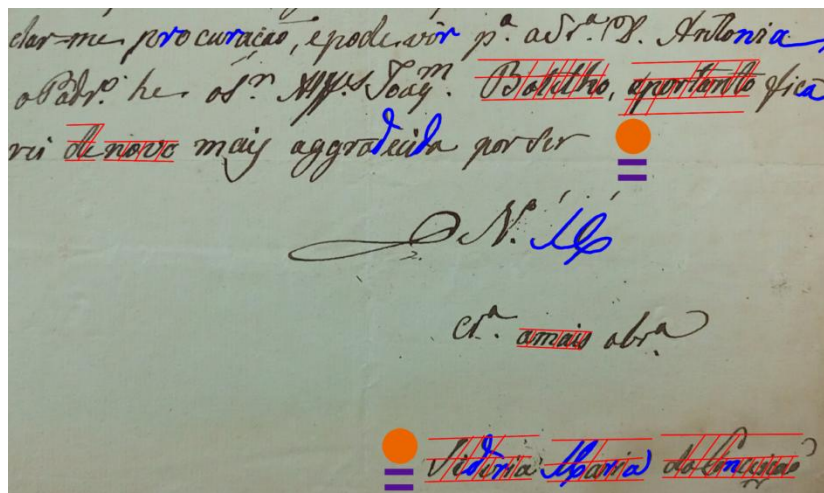 dar-me procuração, e pode vôr p.ª a Sr.ª D. Antonia,
o Padr.º he o S.r Joaq.m Botilho, aportanto fica
rei de novo mais aggradecida por ser
N.
Cr.ª amais obr.ª
Maria da Conceição